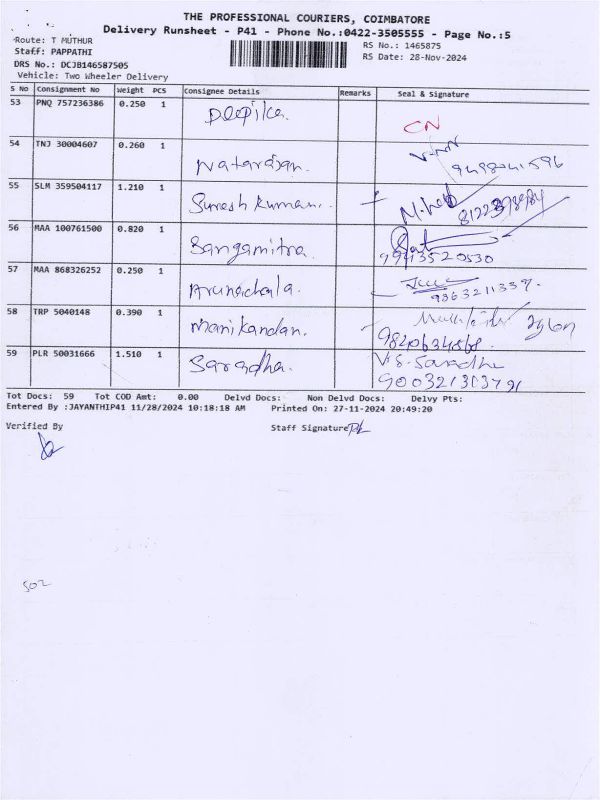 THE PROFESSIONAL COURIERS, COIMBATORE
Delivery Runsheet - P41 - Phone No.:0422-3505555 - Page No.:5
Route: T MUTHUR RS No.: 1465875
Staff: PAPPATHI RS Date: 28-Nov-2024
DRS No.: DCJB146587505
Vehicle: Two Wheeler Delivery
S No Consignment No Weight PCS Consignee Details Remarks Seal & Signature
53 PNQ 757236386 0.250 1 Deepika. CN
54 TNJ 30004607 0.260 1 Natarajan.
55 SLM 359504117 1.210 1 Suresh Kumar.
56 MAA 100761500 0.820 1 Sangamitra. 9943520530
57 MAA 868326252 0.250 1 Arunachala. 9363211337.
58 TRP 5040148 0.390 1 Manikandan.
59 PLR 50031666 1.510 1 Saradha. V.S. Saradha
Tot Docs: 59 Tot COD Amt: 0.00 Delvd Docs: Non Delvd Docs: Delvy Pts:
Entered By :JAYANTHIP41 11/28/2024 10:18:18 AM Printed On: 27-11-2024 20:49:20
Verified By Staff Signature